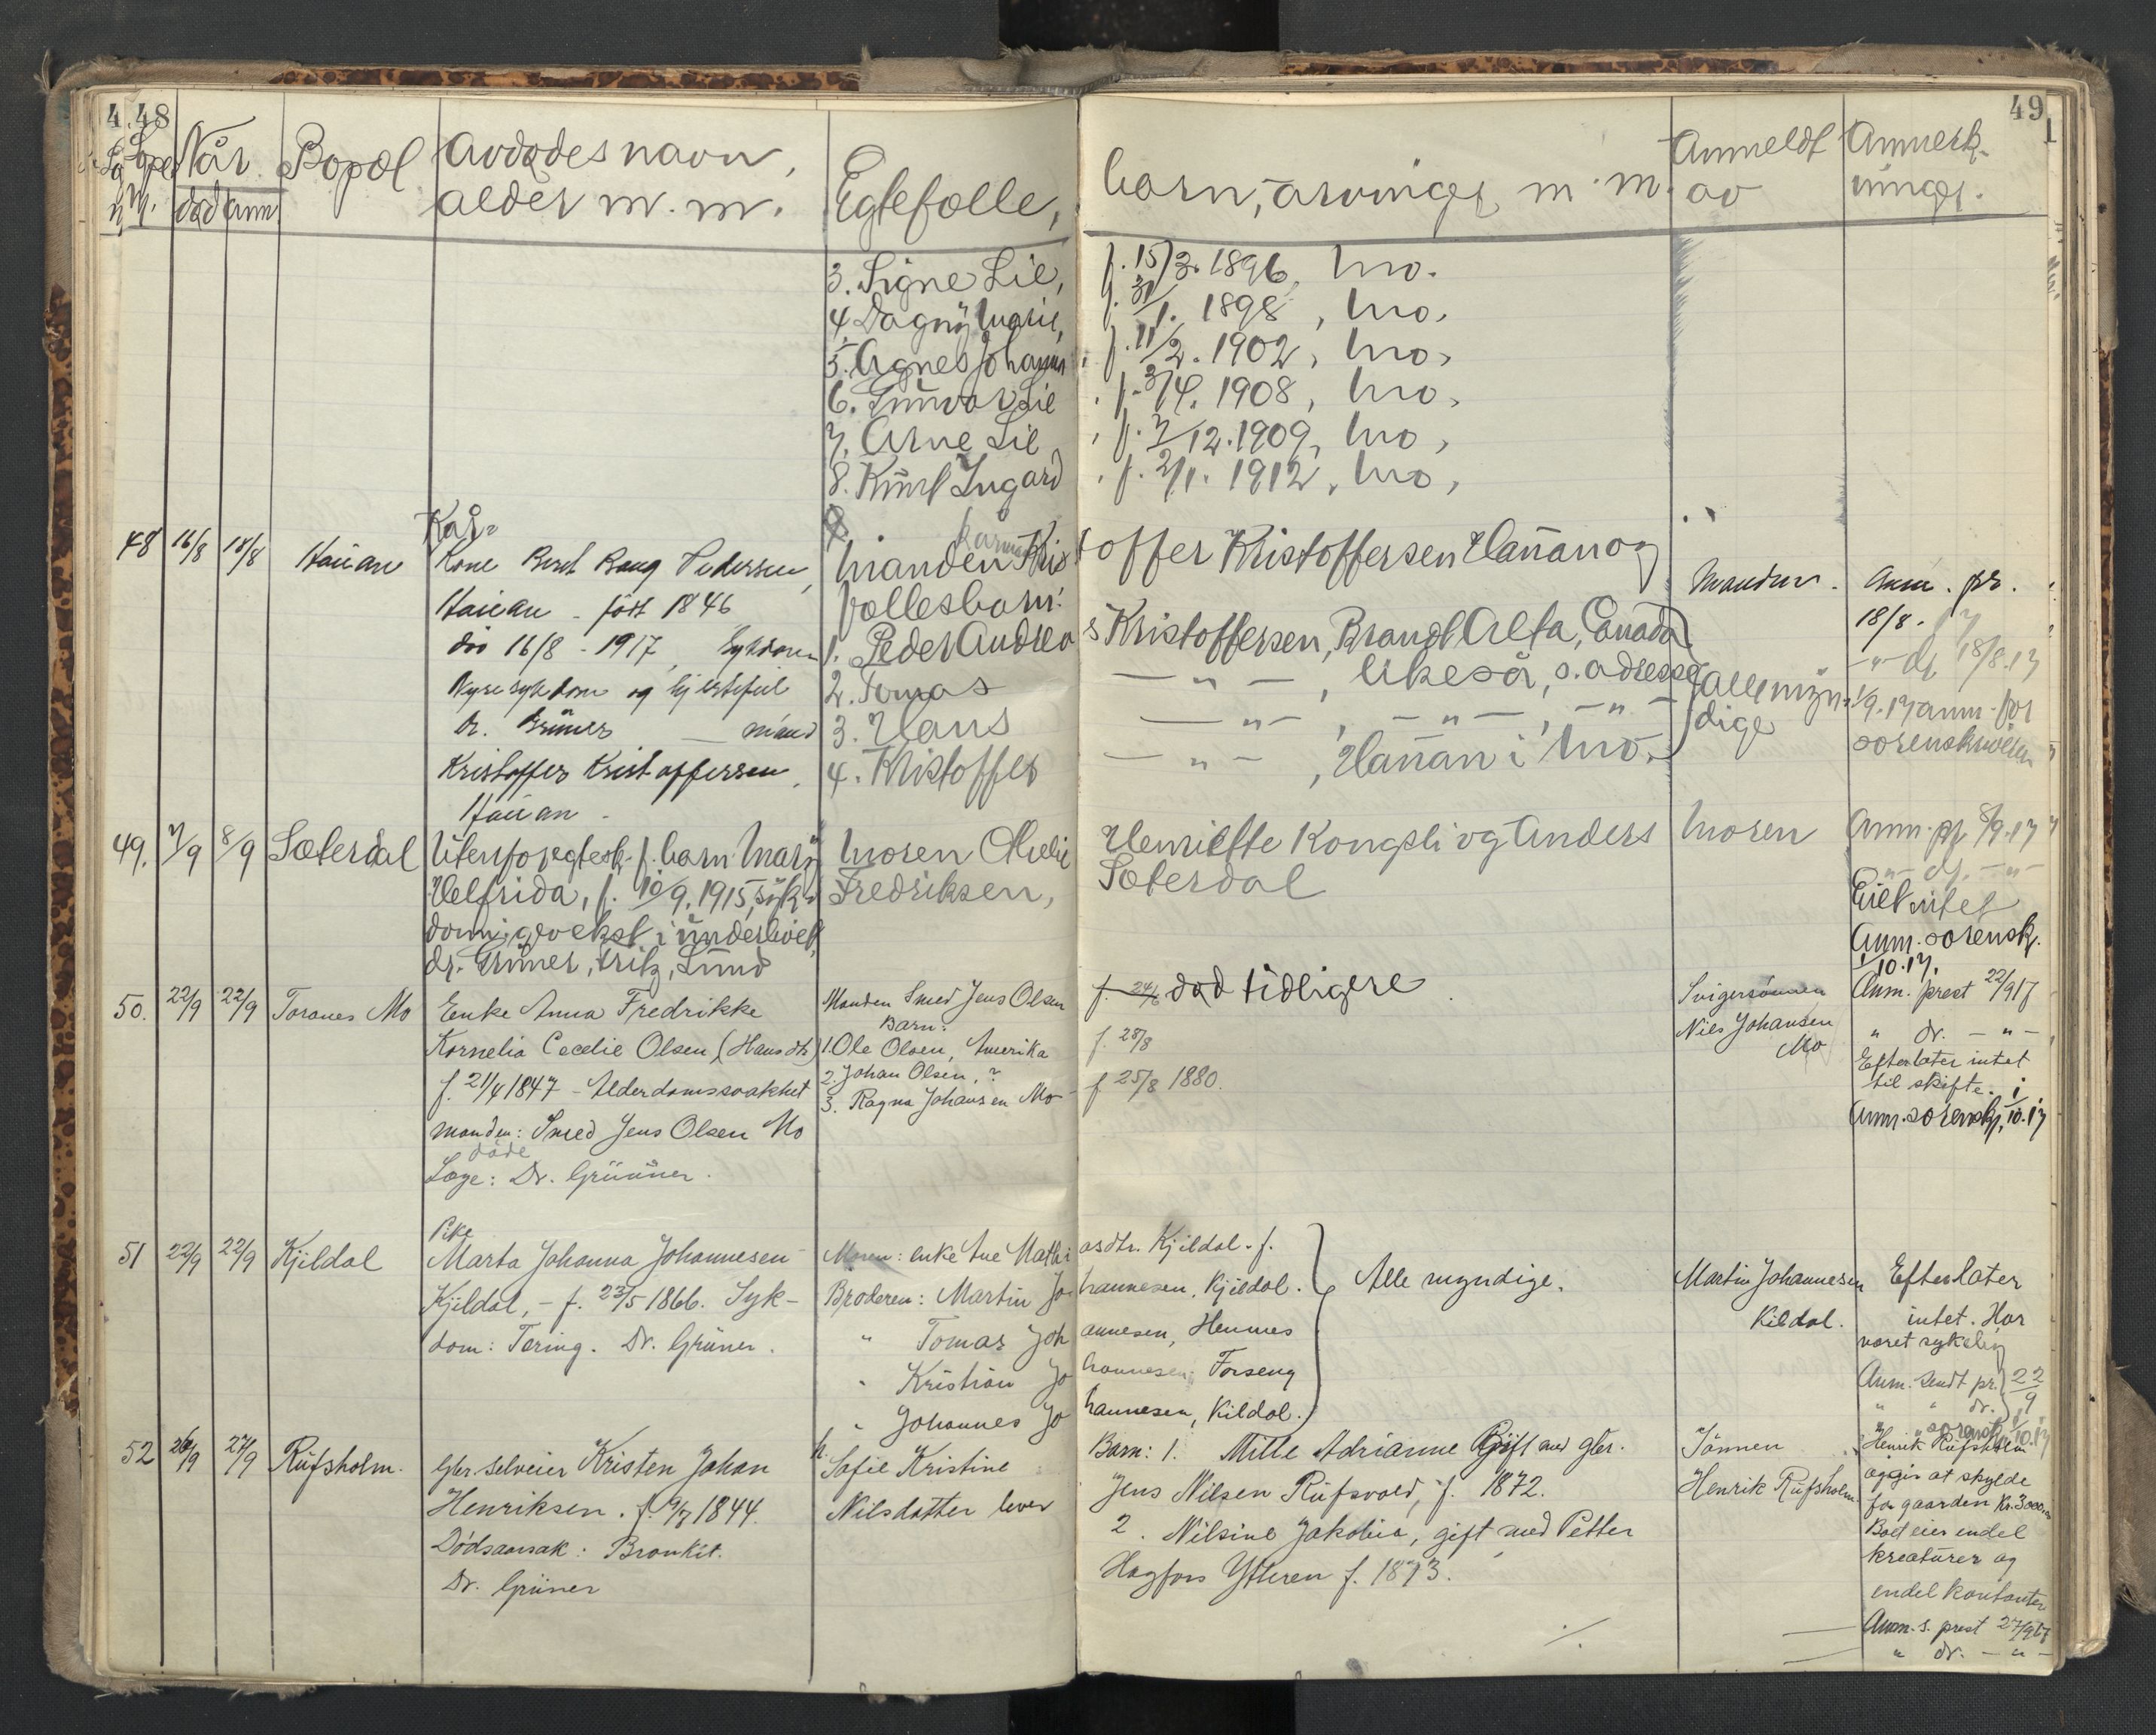 4.48
49
Løpe
nr.
Når
død anm.
Bopæl
Avdødes navn,
alder m. m.
Egtefolle,
barn, arvinger, m. m.
Anmeldt
av
Anmerk-
ninger.
3. Signe Lie, f. 15/3. 1896, Mo.
4. Dagny Marie, f. 31/1. 1898, Mo,
5. Agnes Johanne, f. 11/2. 1902, Mo,
6. Gunvor Lie, f. 3/4. 1908, Mo,
7. Arne Lie, f. 7/12. 1909, Mo,
8. Knut Ingard, f. 2/1. 1912, Mo,
48 16/8 18/8 Hauan
Kår-
Kone Berit Pedersen,
Hauan - født 1846
død 16/8 - 1917, Sykdom
Nyresykdom og hjertefeil
Dr. Grüner — mand
Kristoffer Kristoffersen,
Hauan -
Manden Kristoffer Kristoffersen Hauan og
Fællesbarn:
1. Peder Andreas Kristoffersen, Alta, Canada
2. Tomas — " —, likeså, s. adresse
3. Hans — " —, — " —, — " —
4. Kristoffer — " —, Hauan i Mo.
Alle myn-
dige
Manden.
Anm. pr.
18/8. 17
— " — dr 18/8.17
1/9.17 anm. for
sorenskriveren
49. 7/9 8/9 Sæterdal
Utenfor egtesk. f. barn Mary
Helfrida, f. 10/9. 1915, syk-
dom: gvekst i underlivet,
dr. Grüner, Fritz, Lund
Moren
Fredriksen,
Henriette Kongsli og Anders
Sæterdal
Moren
Anm. pr 8/9.17
— " — dr. — " —
Eiet intet
Anm. sorensk.
1/10.17.
50. 22/9 22/9 Toranes Mo
Enke Anna Fredrikke
Kornelia Cecelie Olsen (Hansdtr)
f. 21/4 1847 - Alderdomssvakhet
manden: Smed Jens Olsen Mo
døde
Læge: Dr. Grünner.
Manden Smed Jens Olsen
f. 24/6 død tidligere
Barn:
1. Ole Olsen, Amerika f. 28/8
2. Johan Olsen, ? f 25/8 1880.
3. Ragna Johansen Mo
Svigersønnen
Nils Johansen
Mo
Anm. prest 22/9 17
" dr. — " —
Efterlater intet
til skifte.
Anm. sorenskr. 1/10.17
51 22/9 22/9 Kjildal
Pike
Marta Johanna Johannesen
Kjildal, - f. 23/5 1866. Syk-
dom: Tæring. Dr. Grüner.
Moren: enke Ane Mathiasdtr. Kjildal. f.
Broderen: Martin Johannesen, Kjildal.
" Tomas Johannesen, Hemnes
" Kristian Johannesen, Forseng
" Johannes Johannesen, Kildal.
Alle myndige.
Martin Johannesen
Kildal.
Efterlater
intet. Har
været sykelig
Anm. sendt pr. 22/9
" " dr.
" " sorensk. 1/10.17
52 26/9 27/9 Rufsholm.
Gbr. selveier Kristen Johan
Henriksen. f. 9/7 1844.
Dødsaarsak: Bronkit.
Dr. Grüner
Sofie Kristine
Nilsdatter lever
Barn: 1. Mille Adrianne Gift med gbr.
Jens Nilsen Rufsvold, f. 1872.
2. Nilsine Jakobia, gift med Petter
Hagfors Ytteren f. 1873.
./.
Sønnen
Henrik Rufsholm
Henrik Rufsholm
opgir at skylde
for gaarden Kr. 3000
Boet eier endel
kreaturer og
endel kontanter
Anm. s. prest 27/9 17
" dr. — " —